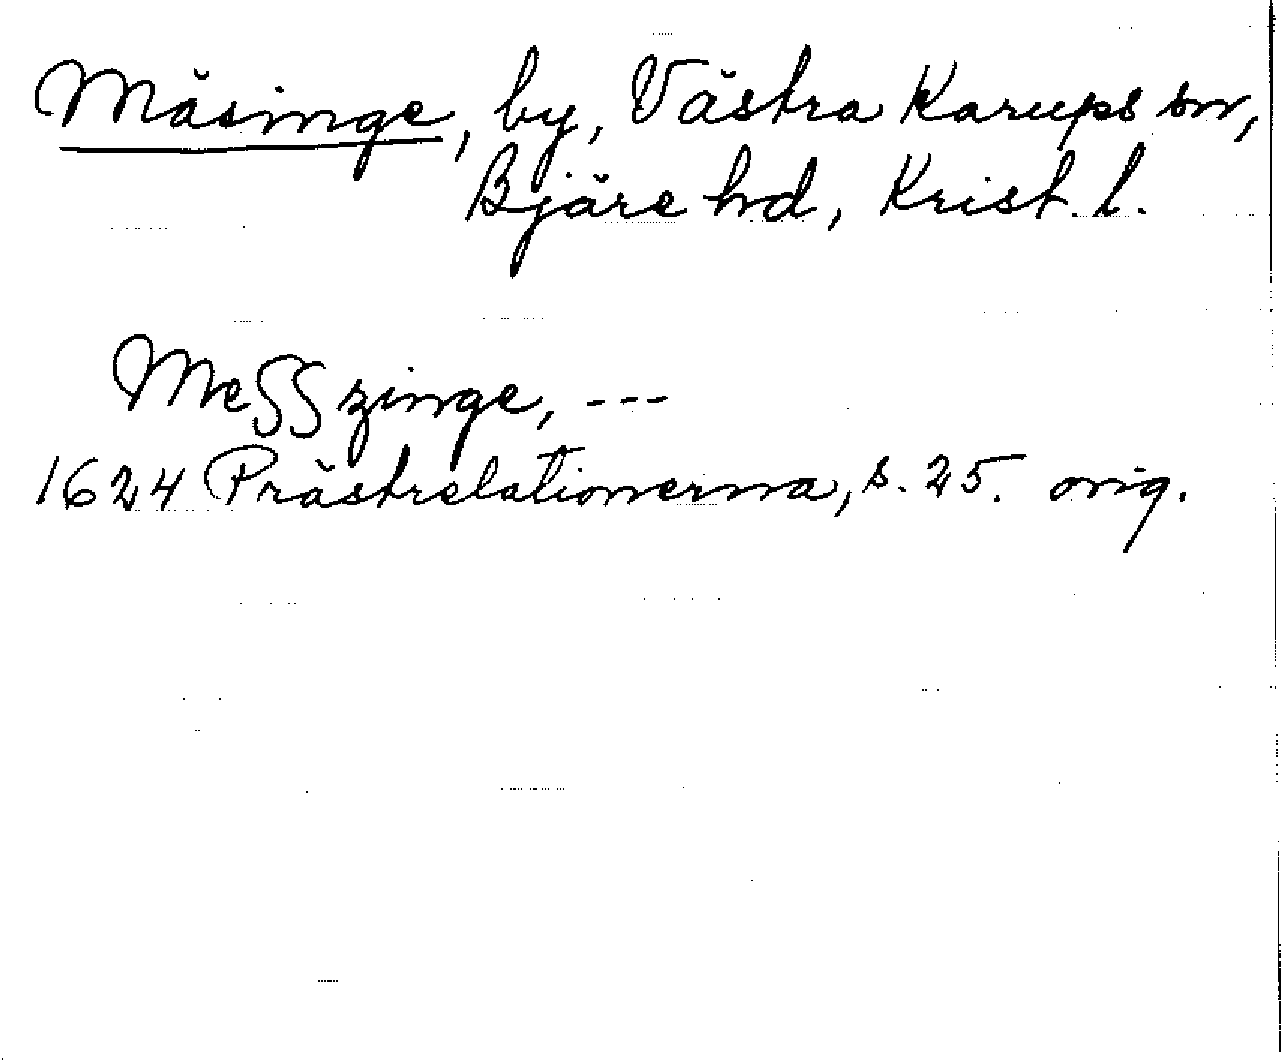 Mäsinge, by, Västra Karups sn,
Bjäre hd, Krist. l.
Meſſzinge, ---
1624 Prästrelationerna, s. 25. orig.